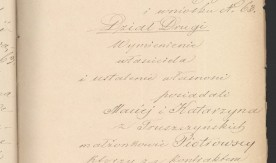 i wniosku N. 63.
Dział Drugi
Wymienienie
właściciela
i ustalenie własności
posiadali
Maciej i Katarzyna
z Truszczyńskich
małżonkowie Piotrowscy
którzy za kontraktem